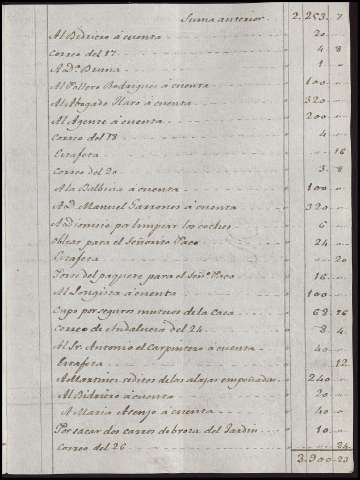 Suma anterior 2.253. 7
Al Bidriero á cuenta 20
Correo del 17 4 8
A Dª Bruna 1
Al Pollero Rodriguez á cuenta 100
Al Abogado Haro á cuenta 320
Al Agente á cuenta 200
Correo del 18 4
Estafeta 16
Correo del 20 3. 8
A la Balbina á cuenta 100
A D. Manuel á cuenta 320
A Dionisio por limpiar los coches 6
para el Señorito Paco 24
Estafeta 20
Porte del paquete para el Señto Paco 16
Al á cuenta 100
Cupo por seguros mutuos de la Casa 68 16
Correo de Andalucia del 24 8 4
Al Sr. Antonio el Carpintero á cuenta 40
Estafeta 12
A Martinez reditos de las alajas empeñadas 240
Al Bidriero á cuenta 20
A Maria Asenjo á cuenta 40
Por sacar dos carros de broza del Jardin 10
Correo del 26 24
3.900 23